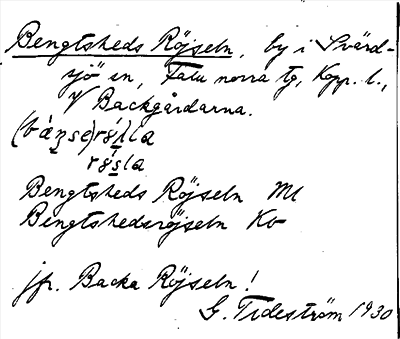 Bengtsheds Röjseln, by i Svärd-
sjö sn, Falu norra tg, Kopp. l.,
V Backgårdarna.
Bengtsheds Röjseln Ml
Bengtshedsröjseln Kb
jfr. Backa Röjseln!
G. Tideström 1930